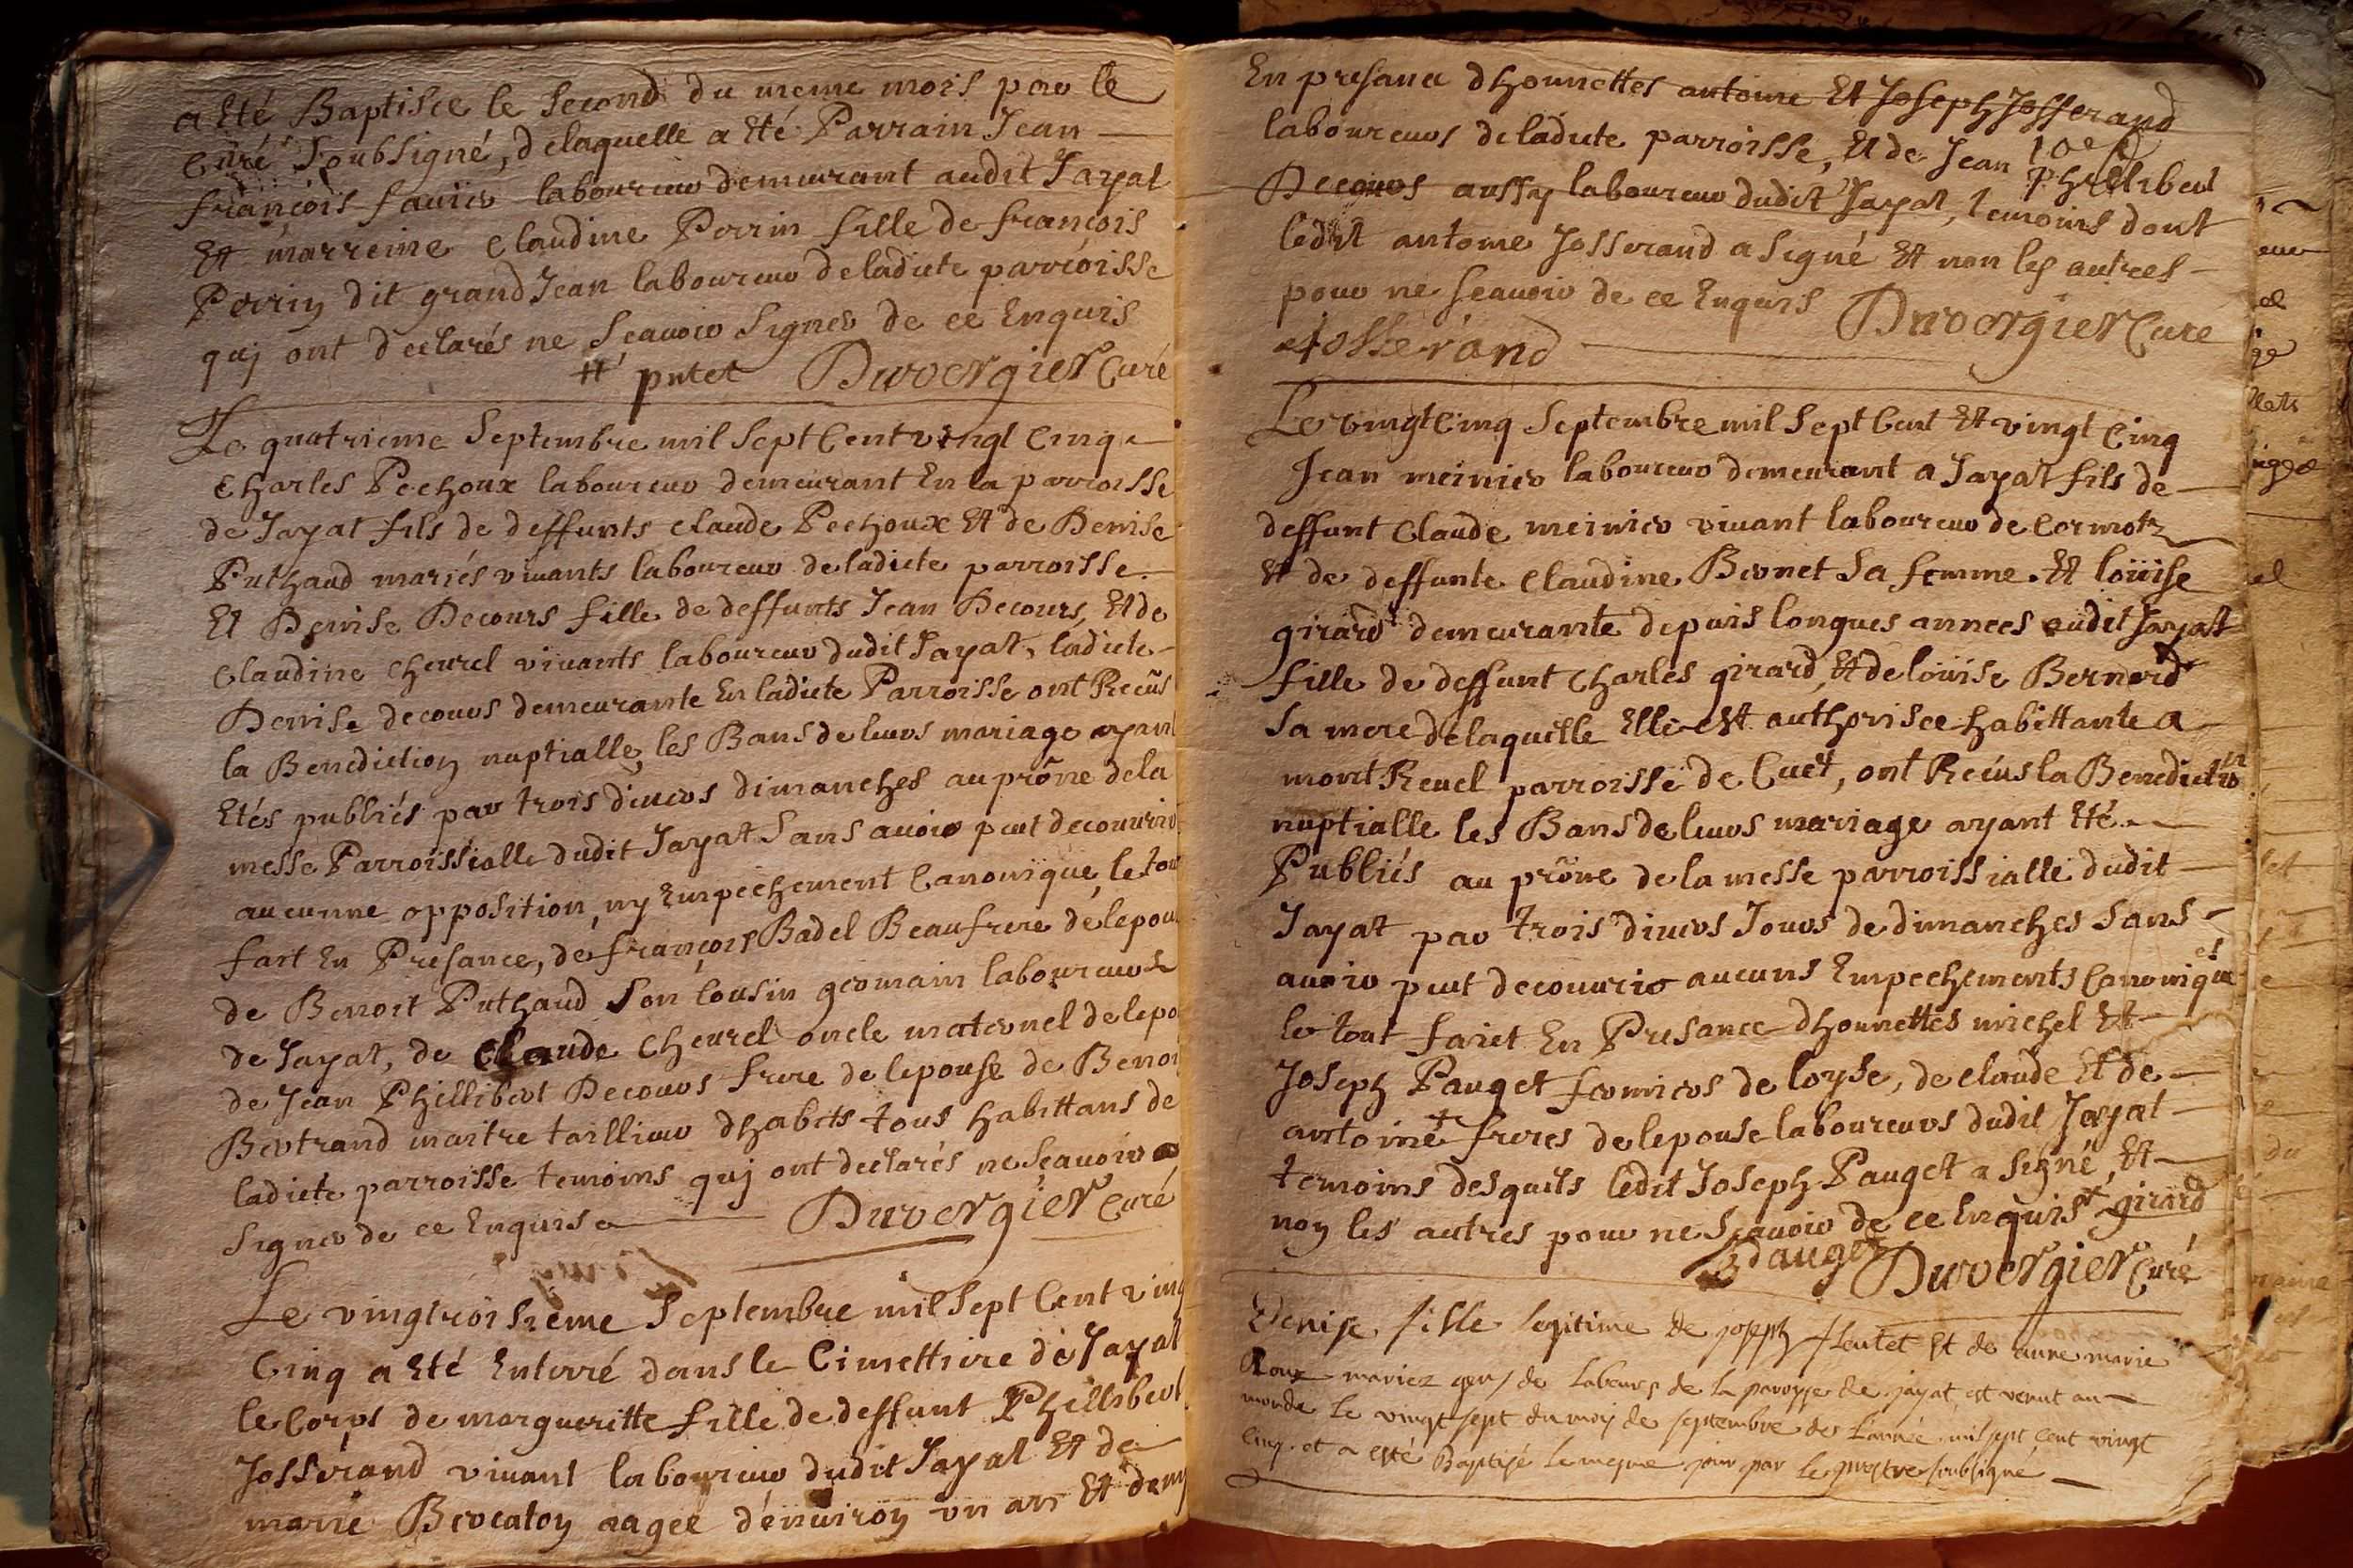 a Eté Baptisee le second du meme mois par le
Curé soubsigné, delaquelle a Eté Parrain Jean
françois favier laboureur demeurant audit Jayat
Et marreine Claudine Perrin fille de françois
Perrin dit grand Jean laboureur deladicte parroisse
quj ont declarés ne sçauoir signer de ce Enquis
putet Duvergier Curé
Le quatrieme Septembre mil sept Cent vingt Cinq
Charles Pechoux laboureur demeurant En la parroisse
de Jayat fils de deffunts Claude Pechoux Et de Denise
Puthaud mariés viuants laboureur deladicte parroisse
Et Denise Decours fille de deffunts Jean Decours, Et de
Claudine Cheurel viuants laboureur dudit Jayat, ladicte
Denise decours demeurante En ladicte Parroisse ont Recûs
la Benediction nuptialle, les Bans de leurs mariage ayant
Etés publiés par trois diuers dimanches au prône dela
messe Parroissialle dudit Jayat sans auoir peut decouurir
aucunne opposition, ny Empechement Canonique, le tou
fait En Presance, de françois Badel Beaufrere de lepou
de Benoit Puthaud son Cousin germain laboureurs
de Jayat, de Claude Cheurel oncle maternel de lepo
de Jean Phillibert Decours frere de lepouse de Benoi
Bertrand maitre taillieur dhabits tous habittans de
ladicte parroisse temoins quj ont declarés ne sçauoir
signer de ce Enquis Duvergier Curé
Le vingtroisieme Septembre mil sept Cent ving
Cinq a Eté Enterré dans le Cimettiere de Jayat
le Corps de margueritte fille de deffunt Phillibert
Josserand viuant laboureur dudit Jayat Et de
marie Brocaton aagee d'énuiron vn an Et demy
En presance dhonnettes antoine Et Joseph Josserand
laboureurs deladicte parroisse, Et de Jean Phillibert
Decours aussy laboureur dudit Jayat, temoins dont
ledit antoine Josserand a signé Et non les autres
pour ne sçauoir de ce Enquis Duvergier Curé
Josserand
Le vingt Cinq Septembre mil sept Cent Et vingt Cinq
Jean meinier laboureur demeurant a Jayat fils de
deffunt Claude meinier viuant laboureur de Cormotz
Et de deffunte Claudine Bronet sa femme. Et loüise
girard demeurante depuis longues annees audit Jayat
fille de deffunt Charles girard, Et de loüise Bernard
sa mere delaquelle Elle est authorisee habittante a
mont Reuel parroisse de Cuet, ont Recûs la Benediction
nuptialle les Bans de leurs mariage ayant Eté
Publiés au prône de la messe parroissialle dudit
Jayat par trois diuers Jours de dimanches sans
auoir peut decouurir aucuns Empechements Canoniques
le tout faict En Presance dhonnettes michel Et
Joseph Pauget fermiers de loyse, de claude Et de
antoine + freres de lepouse laboureurs dudit Jayat
temoins desquels ledit Joseph Pauget a signé, Et
non les autres pour ne sçauoir de ce Enquis + girard
Pauget Duvergier Curé
Denise fille legitime de joseph fleutet Et de anne marie
Roux mariez gens de labeurs de la paroisse de jayat, est venut au
monde le vingt sept du mois de septembre des l'année mil sept cent vingt
Cinq. et a esté Baptisé le mesme jour par le prestre soubsigné